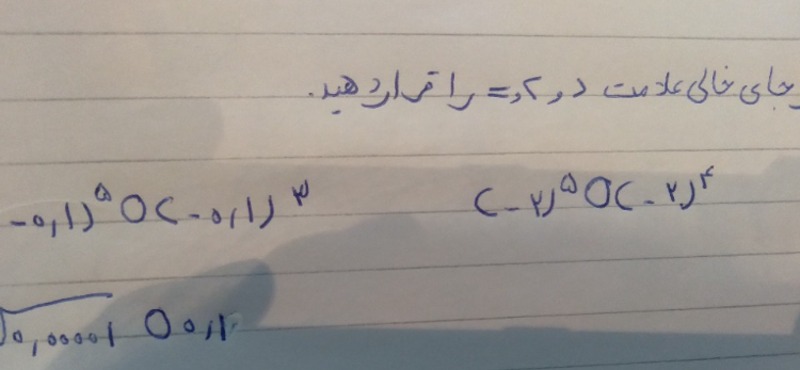 جای خالی علامت < و > و = را قرار دهید.
(-۲)^۵ ○ (-۲)^۴
-۰,۱)^۵ ○ (-۰,۱)^۳
√۰,۰۰۰۰۱ ○ ۰,۱